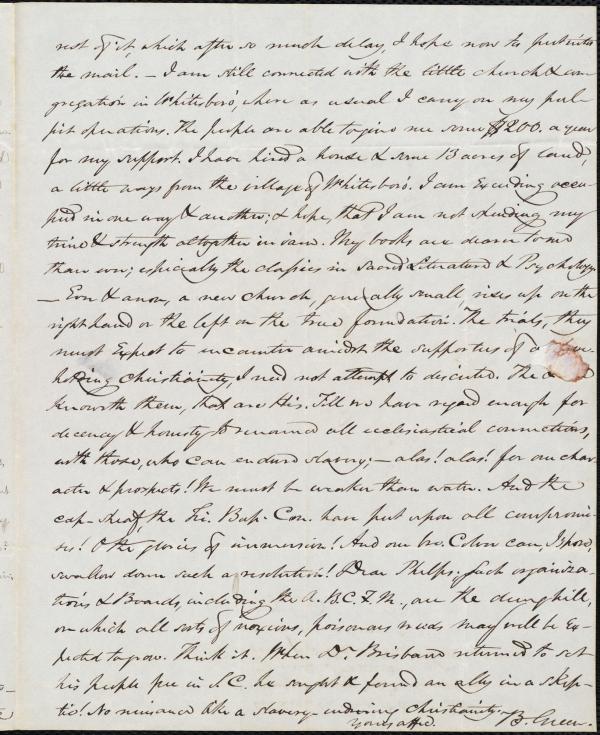 rest of it which after so much delay, I hope now to put into
the mail. — I am still connected with the little church & con-
gregation in Whitesboro', where as usual I carry on my pul-
pit operations. The people are able to give me some $200. a year
for my support. I have hired a house & some 13 acres of land,
a little ways from the village of Whitesboro. I am exceeding occu-
pied in one way & another; & hope, that I am not spending my
time & strength altogether in vain. My books are dearer to me
than ever; especially the classics in Sacred Literature & Psychology.
— Ever & anon, a new church, generally small, rises up on the
right hand or the left on the true foundation. The trials, they
must expect to encounter amidst the supporters of a
holding Christianity, I need not attempt to describe. The
knoweth them, that are His. Till we have regard enough for
decency & honesty to renounce all ecclesiastical connections,
with those, who can endure slavery; — alas! alas! for our char-
acter & prospects! We must be weaker than water. And the
cap-sheaf, the Bap. Con. have put upon all compromi-
ses! O the glories of immersion! And our bro. Colver can, I spose,
swallow down such a resolution! Dear Phelps, such organiza-
tions & Boards, including the A.B.C.F.M., are the dunghill,
on which all sorts of noxious, poisonous weeds may well be ex-
pected to grow. Think it. When Dr. Brisbane returned to set
his people free in S.C. he sought & found an ally in a skep-
tic! No nuisance like a slavery-enduring Christianity.
Yours affec. B. Green.